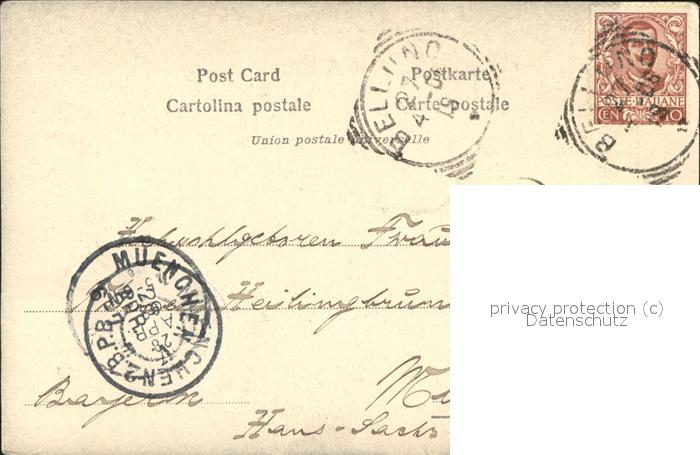 Post Card Postkarte
Cartolina postale Carte postale
Union postale universelle
BELLUNO
27
4
BELLUNO
POSTE ITALIANE
CENT 10
Hochwohlgeboren Frau
privacy protection (c)
Datenschutz
MUENCHEN
28 APR
MUENCHEN 2.B.P.B.
Bayern
Hans-Sachs